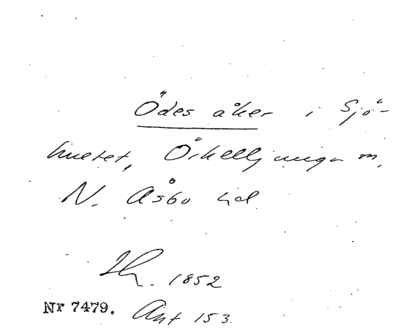 Ödes åker i Sjö-
huset, Örkelljunga m,
N. Åsbo hd.
Ih. 1852
Nr 7479. Ant 153.